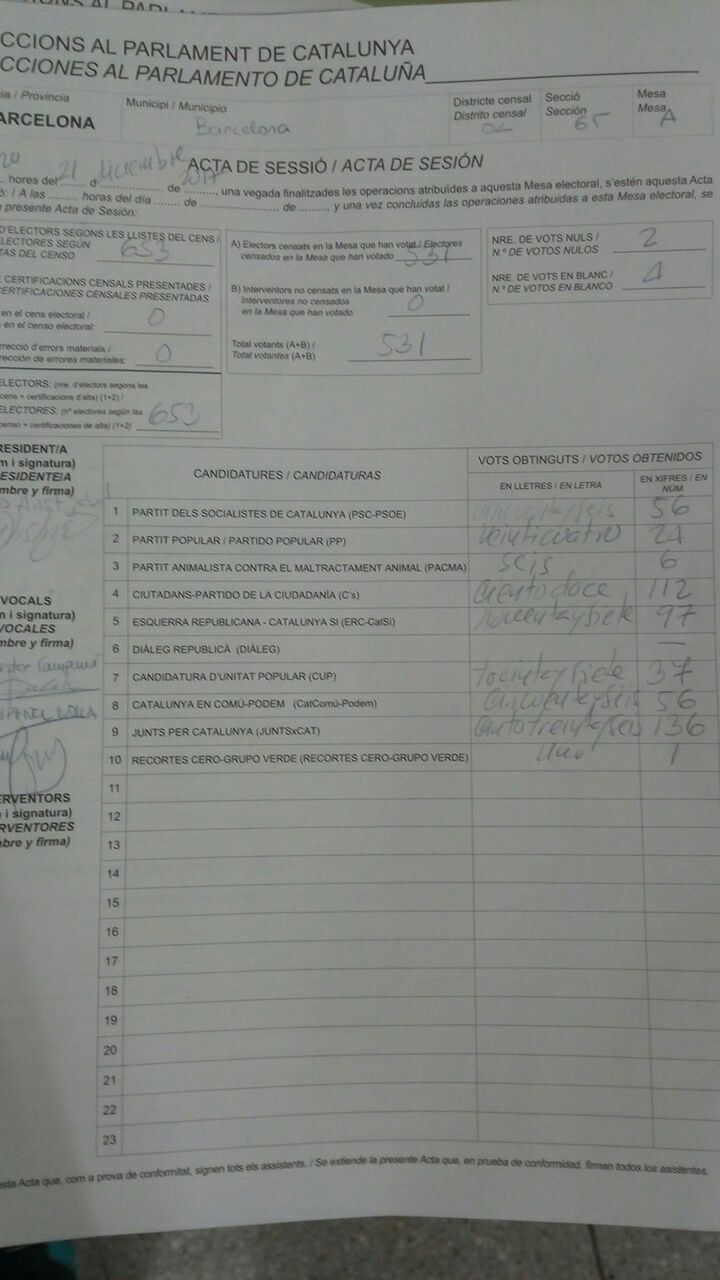 CCIONS AL PARLAMENT DE CATALUNYA
CCIONES AL PARLAMENTO DE CATALUÑA
cia / Provincia
ARCELONA
Municipi / Municipio
Barcelona
Districte censal
Distrito censal
02
Secció
Sección
65
Mesa
Mesa
A
ACTA DE SESSIÓ / ACTA DE SESIÓN
20 hores del 21 d diciembre de 2017, una vegada finalitzades les operacions atribuïdes a aquesta Mesa electoral, s'estén aquesta Acta
ó: / A las ........ horas del día ........ de ........................ de ........, y una vez concluidas las operaciones atribuidas a esta Mesa electoral, se
presente Acta de Sesión:
D'ELECTORS SEGONS LES LLISTES DEL CENS /
ELECTORES SEGÚN
TAS DEL CENSO
653
CERTIFICACIONS CENSALS PRESENTADES /
CERTIFICACIONES CENSALES PRESENTADAS
en el cens electoral /
en el censo electoral:
0
rrecció d'errors materials /
rección de errores materiales:
0
ELECTORS: (nre. d'electors segons les
cens + certificacions d'alta) (1+2) /
ELECTORES: (nº electores según las
censo + certificaciones de alta) (1+2)
653
A) Electors censats en la Mesa que han votat / Electores
censados en la Mesa que han votado
531
B) Interventors no censats en la Mesa que han votat /
Interventores no censados
en la Mesa que han votado
0
Total votants (A+B) /
Total votantes (A+B)
531
NRE. DE VOTS NULS /
N.º DE VOTOS NULOS
2
NRE. DE VOTS EN BLANC /
N.º DE VOTOS EN BLANCO
4
RESIDENT/A
m i signatura)
RESIDENTE/A
mbre y firma)
VOCALS
m i signatura)
VOCALES
mbre y firma)
ERVENTORS
i signatura)
RVENTORES
bre y firma)
CANDIDATURES / CANDIDATURAS
VOTS OBTINGUTS / VOTOS OBTENIDOS
EN LLETRES / EN LETRA
EN XIFRES / EN NÚM.
1 PARTIT DELS SOCIALISTES DE CATALUNYA (PSC-PSOE) cincuentayseis 56
2 PARTIT POPULAR / PARTIDO POPULAR (PP) veinticuatro 24
3 PARTIT ANIMALISTA CONTRA EL MALTRACTAMENT ANIMAL (PACMA) seis 6
4 CIUTADANS-PARTIDO DE LA CIUDADANÍA (C's) ciento doce 112
5 ESQUERRA REPUBLICANA - CATALUNYA SI (ERC-CatSí) noventaysiete 97
6 DIÀLEG REPUBLICÀ (DIÀLEG) —
7 CANDIDATURA D'UNITAT POPULAR (CUP) treintaysiete 37
8 CATALUNYA EN COMÚ-PODEM (CatComú-Podem) cincuentayseis 56
9 JUNTS PER CATALUNYA (JUNTSxCAT) cientotreintayseis 136
10 RECORTES CERO-GRUPO VERDE (RECORTES CERO-GRUPO VERDE) uno 1
11
12
13
14
15
16
17
18
19
20
21
22
23
esta Acta que, com a prova de conformitat, signen tots els assistents. / Se extiende la presente Acta que, en prueba de conformidad, firman todos los asistentes.